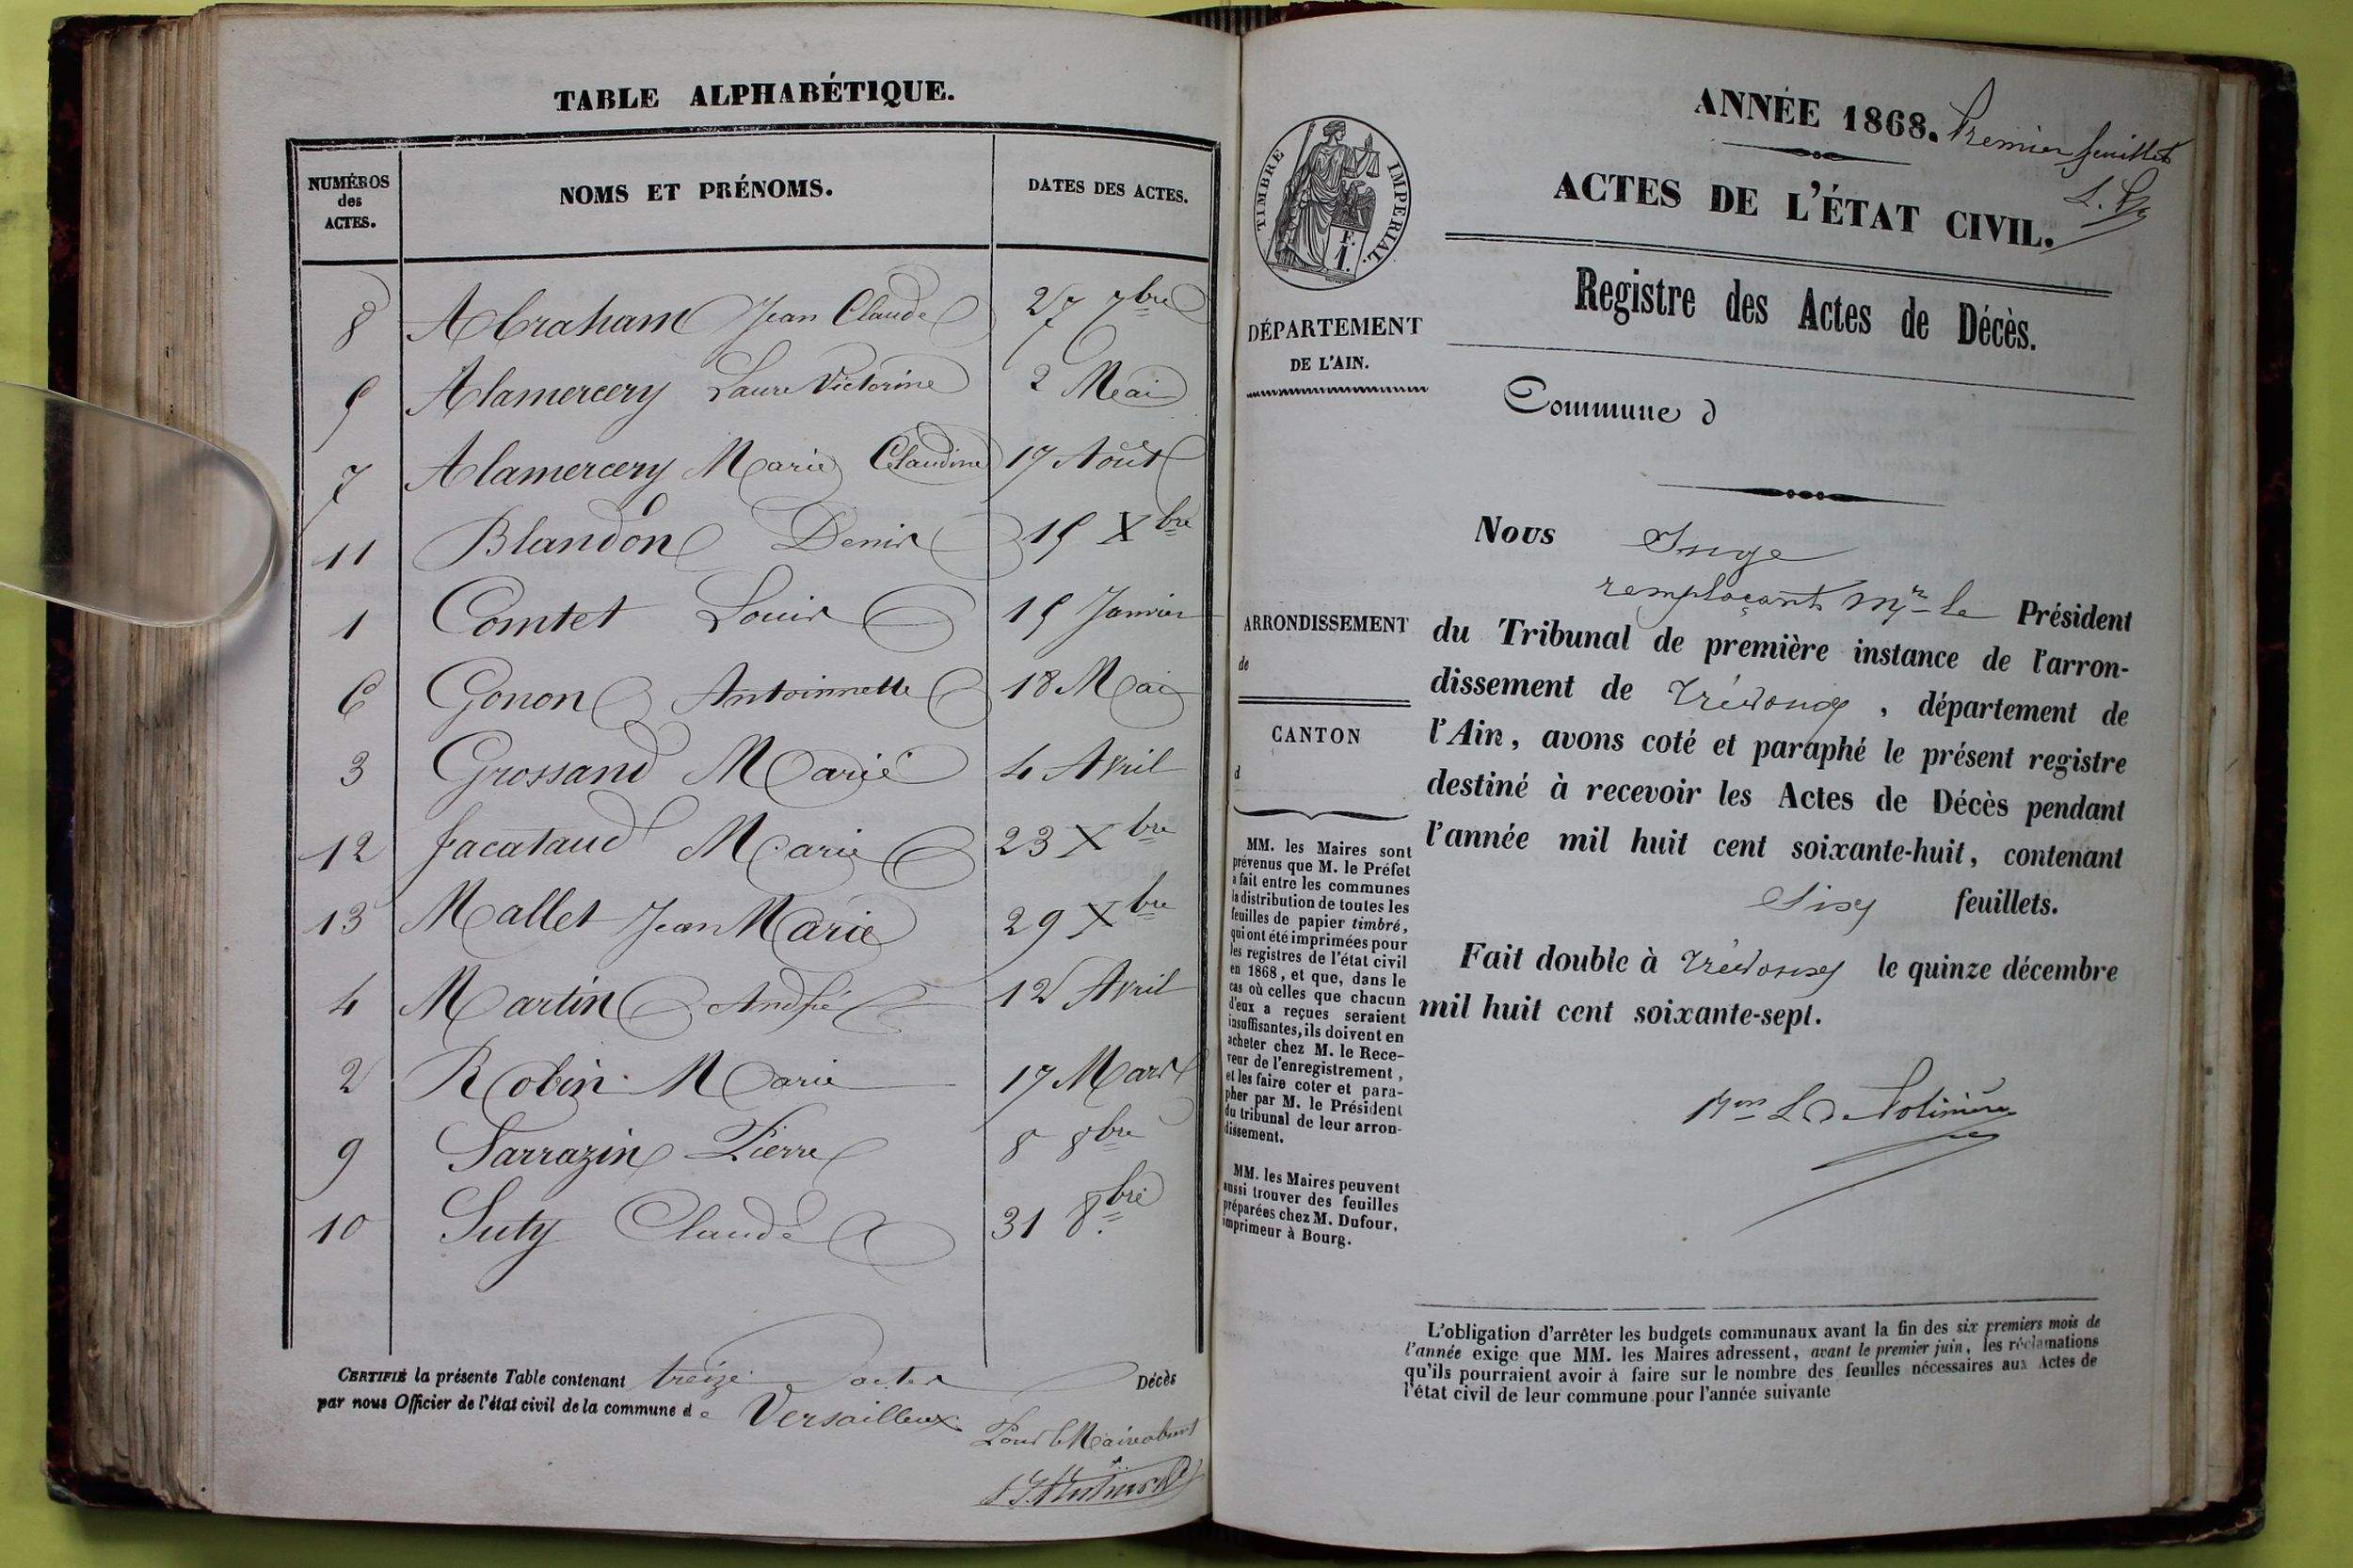 TABLE ALPHABÉTIQUE.
NUMÉROS
des
ACTES.
NOMS ET PRÉNOMS.
DATES DES ACTES.
8 Abraham Jean Claude 27 7bre
5 Alamercery Laure Victorine 2 Mai
7 Alamercery Marie Claudine 17 Août
11 Blandon Denis 15 Xbre
1 Comtet Louis 15 Janvier
6 Gonon Antoinnette 18 Mai
3 Grossand Marie 4 Avril
12 Jacataud Marie 23 Xbre
13 Mallet Jean Marie 29 Xbre
4 Martin André 12 Avril
2 Robin Marie 17 Mars
9 Sarrazin Pierre 8 8bre
10 Suty Claude 31 8bre
CERTIFIÉ la présente Table contenant treize actes Décès
par nous Officier de l'état civil de la commune de Versailleux
Pour le Maire absent
TIMBRE IMPERIAL.
F.
1.
ANNÉE 1868. Premier feuillet
ACTES DE L'ÉTAT CIVIL.
Registre des Actes de Décès.
DÉPARTEMENT
DE L'AIN.
Commune d
ARRONDISSEMENT
de
CANTON
d
MM. les Maires sont
prévenus que M. le Préfet
a fait entre les communes
la distribution de toutes les
feuilles de papier timbré,
qui ont été imprimées pour
les registres de l'état civil
en 1868, et que, dans le
cas où celles que chacun
d'eux a reçues seraient
insuffisantes, ils doivent en
acheter chez M. le Rece-
veur de l'enregistrement,
et les faire coter et para-
pher par M. le Président
du tribunal de leur arron-
dissement.
MM. les Maires peuvent
aussi trouver des feuilles
préparées chez M. Dufour,
imprimeur à Bourg.
Nous Juge
remplaçant Mr le Président
du Tribunal de première instance de l'arron-
dissement de Trévoux, département de
l'Ain, avons coté et paraphé le présent registre
destiné à recevoir les Actes de Décès pendant
l'année mil huit cent soixante-huit, contenant
Six feuillets.
Fait double à Trévoux le quinze décembre
mil huit cent soixante-sept.
L'obligation d'arrêter les budgets communaux avant la fin des six premiers mois de
l'année exige que MM. les Maires adressent, avant le premier juin, les réclamations
qu'ils pourraient avoir à faire sur le nombre des feuilles nécessaires aux Actes de
l'état civil de leur commune pour l'année suivante